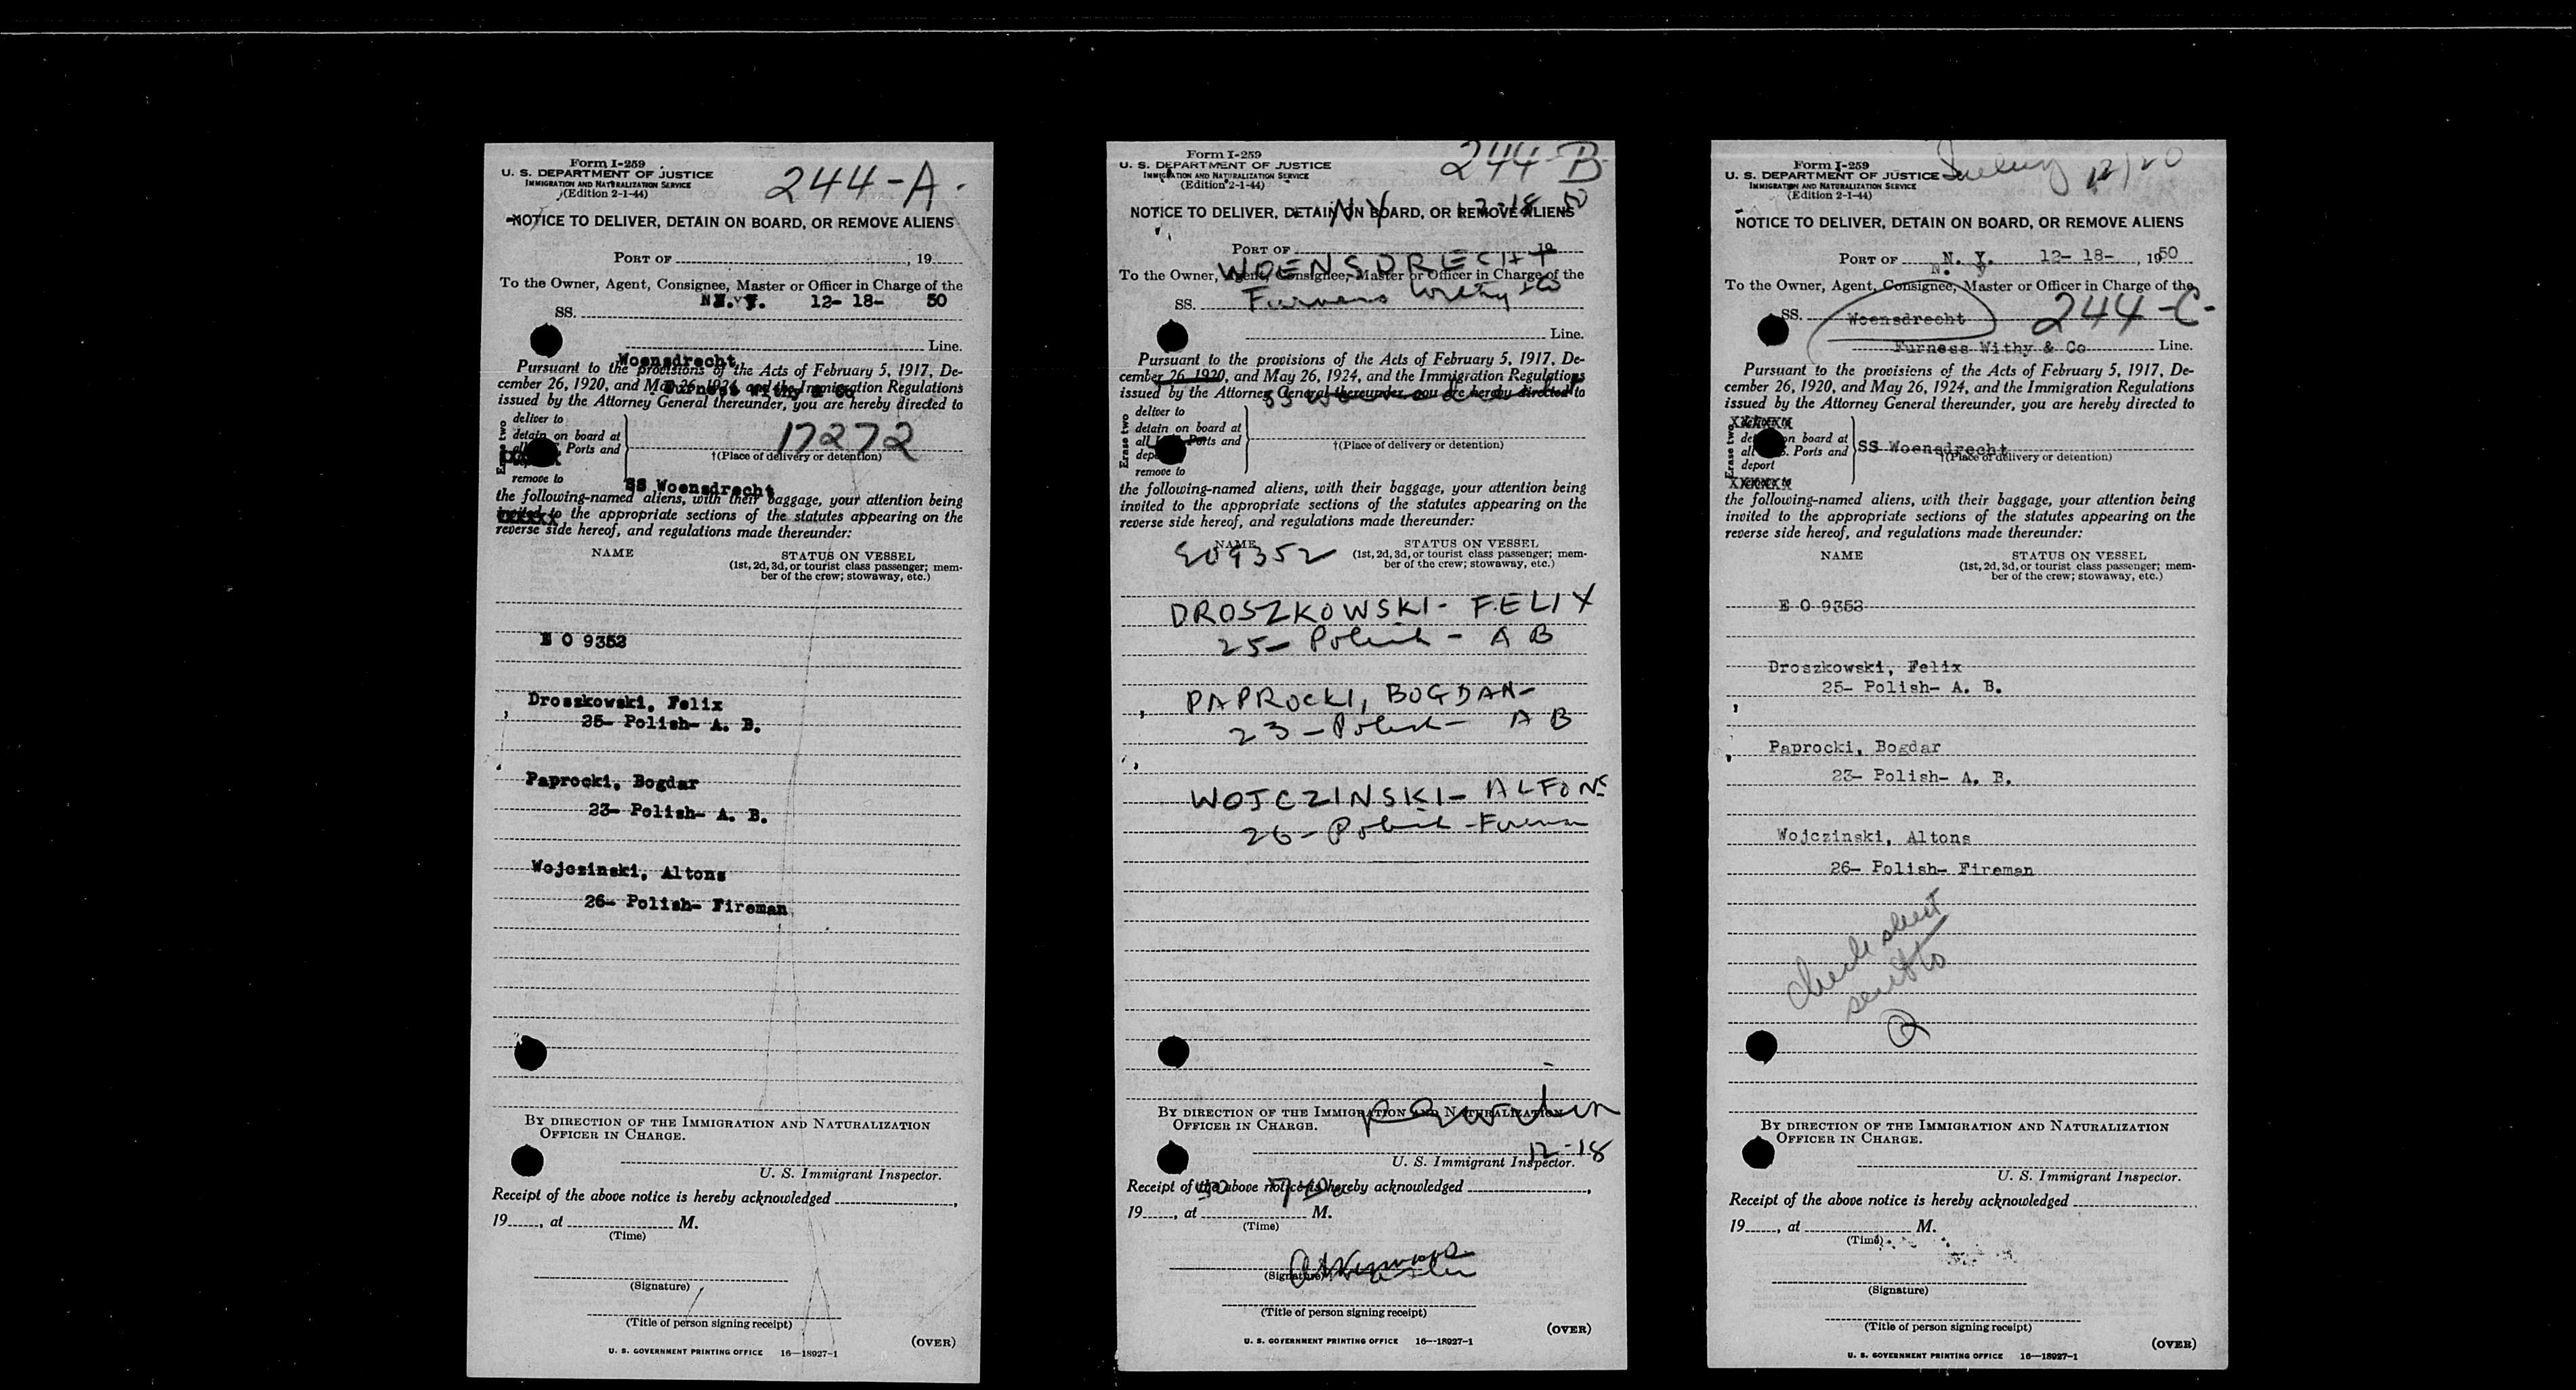 Form I-259
U. S. DEPARTMENT OF JUSTICE
IMMIGRATION AND NATURALIZATION SERVICE
(Edition 2-1-44)
244-A.
NOTICE TO DELIVER, DETAIN ON BOARD, OR REMOVE ALIENS
PORT OF , 19
To the Owner, Agent, Consignee, Master or Officer in Charge of the
N. Y. 12- 18- 50
SS.
Line.
Woensdrecht
Pursuant to the provisions of the Acts of February 5, 1917, De-
cember 26, 1920, and May 26, 1924, and the Immigration Regulations
Furness Withy & Co
issued by the Attorney General thereunder, you are hereby directed to
Erase two
deliver to
detain on board at
all Ports and
remove to
17272
†(Place of delivery or detention)
SS Woensdrecht
the following-named aliens, with their baggage, your attention being
invited to the appropriate sections of the statutes appearing on the
reverse side hereof, and regulations made thereunder:
NAME
STATUS ON VESSEL
(1st, 2d, 3d, or tourist class passenger; mem-
ber of the crew; stowaway, etc.)
E O 9352
Droszkowski, Felix
25- Polish- A. B.
Paprocki, Bogdar
23- Polish- A. B.
Wojczinski, Altons
26- Polish- Fireman
BY DIRECTION OF THE IMMIGRATION AND NATURALIZATION
OFFICER IN CHARGE.
U. S. Immigrant Inspector.
Receipt of the above notice is hereby acknowledged ,
19 , at M.
(Time)
(Signature)
(Title of person signing receipt)
(OVER)
U. S. GOVERNMENT PRINTING OFFICE 16—18927-1
Form I-259
U. S. DEPARTMENT OF JUSTICE
IMMIGRATION AND NATURALIZATION SERVICE
(Edition 2-1-44)
244-B
NOTICE TO DELIVER, DETAIN ON BOARD, OR REMOVE ALIENS
N Y 12-18 50
PORT OF 19
WOENSDRECHT
To the Owner, Agent, Consignee, Master or Officer in Charge of the
SS. Furness Withy & Co
Line.
Pursuant to the provisions of the Acts of February 5, 1917, De-
cember 26, 1920, and May 26, 1924, and the Immigration Regulations
issued by the Attorney General thereunder, you are hereby directed to
Erase two
deliver to
detain on board at
all Ports and
remove to
†(Place of delivery or detention)
the following-named aliens, with their baggage, your attention being
invited to the appropriate sections of the statutes appearing on the
reverse side hereof, and regulations made thereunder:
NAME
STATUS ON VESSEL
(1st, 2d, 3d, or tourist class passenger; mem-
ber of the crew; stowaway, etc.)
EO9352
DROSZKOWSKI- FELIX
25- Polish - A B
PAPROCKI, BOGDAN-
23 - Polish - A B
WOJCZINSKI- ALFONS
26- Polish - Fireman
BY DIRECTION OF THE IMMIGRATION AND NATURALIZATION
OFFICER IN CHARGE.
12-18
U. S. Immigrant Inspector.
Receipt of the above notice is hereby acknowledged ,
19 , at M.
(Time)
(Signature)
(Title of person signing receipt)
(OVER)
U. S. GOVERNMENT PRINTING OFFICE 16—18927-1
Form I-259
U. S. DEPARTMENT OF JUSTICE
IMMIGRATION AND NATURALIZATION SERVICE
(Edition 2-1-44)
12/20
NOTICE TO DELIVER, DETAIN ON BOARD, OR REMOVE ALIENS
PORT OF N. Y. 12- 18- , 1950
N. Y
To the Owner, Agent, Consignee, Master or Officer in Charge of the
SS. Woensdrecht 244-C-
Furness Withy & Co Line.
Pursuant to the provisions of the Acts of February 5, 1917, De-
cember 26, 1920, and May 26, 1924, and the Immigration Regulations
issued by the Attorney General thereunder, you are hereby directed to
Erase two
on board at
all Ports and
deport
SS Woensdrecht
†(Place of delivery or detention)
the following-named aliens, with their baggage, your attention being
invited to the appropriate sections of the statutes appearing on the
reverse side hereof, and regulations made thereunder:
NAME
STATUS ON VESSEL
(1st, 2d, 3d, or tourist class passenger; mem-
ber of the crew; stowaway, etc.)
E O 9352
Droszkowski, Felix
25- Polish- A. B.
Paprocki, Bogdar
23- Polish- A. B.
Wojczinski, Altons
26- Polish- Fireman
check sheet
sent to
BY DIRECTION OF THE IMMIGRATION AND NATURALIZATION
OFFICER IN CHARGE.
U. S. Immigrant Inspector.
Receipt of the above notice is hereby acknowledged
19 , at M.
(Time)
(Signature)
(Title of person signing receipt)
(OVER)
U. S. GOVERNMENT PRINTING OFFICE 16—18927-1